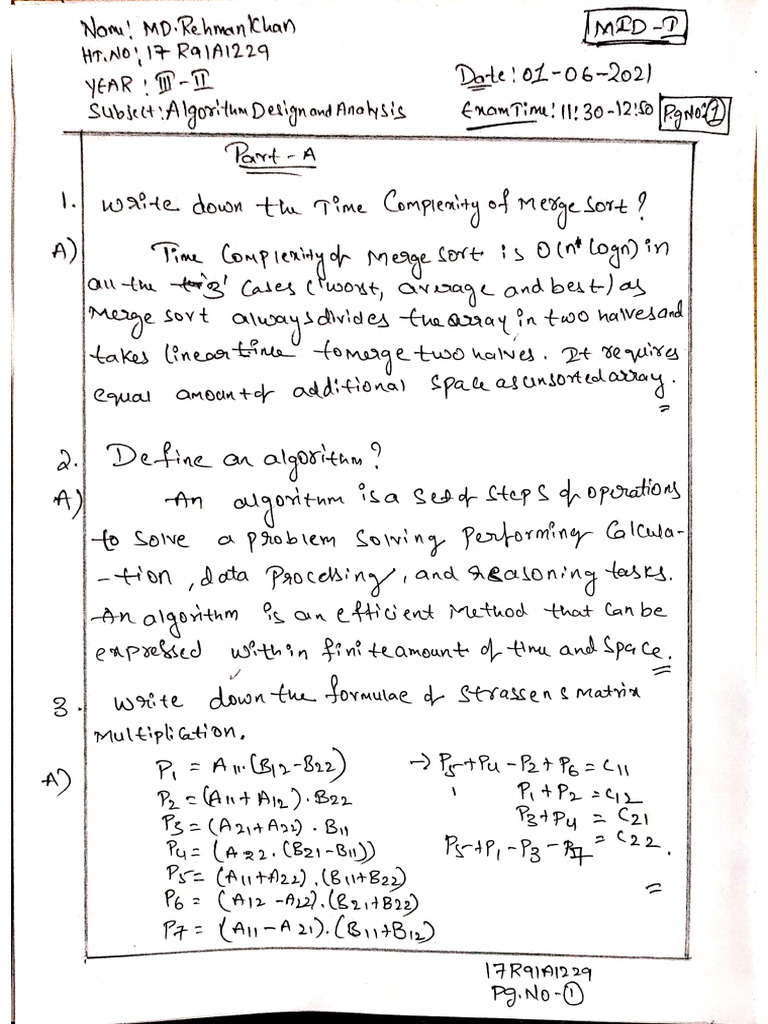 Nom: MD.Rehman Khan
MID-I
HT.NO: 17 R91A1229
YEAR : III-II
Date: 01-06-2021
Subject: Algorithm Design and Analysis
Exam Time: 11:30-12:50
Pg No: 1
Part-A
1. Write down the Time Complexity of Merge Sort?
A) Time Complexity of Merge sort is O(n* logn) in
all the 3' Cases ('worst, average and best) as
Merge sort always divides the array in two halves and
takes linear time to merge two halves. It requires
equal amount of additional space as unsorted array.
2. Define an algorithm?
A) An algorithm is a set of steps of operations
to solve a problem solving performing Calcula-
-tion, data processing, and reasoning tasks.
An algorithm is an efficient Method that can be
expressed within finite amount of time and space.
3. Write down the formulae of Strassens Matrix
Multiplication.
A) P1 = A11.(B12-B22) → P5+P4-P2+P6=C11
P2=(A11+A12).B22 P1+P2=C12
P3=(A21+A22).B11 P3+P4=C21
P4=(A22.(B21-B11)) P5+P1-P3-P7=C22.
P5=(A11+A22).(B11+B22)
P6=(A12-A22).(B21+B22)
P7=(A11-A21).(B11+B12)
17R91A1229
Pg.No-1